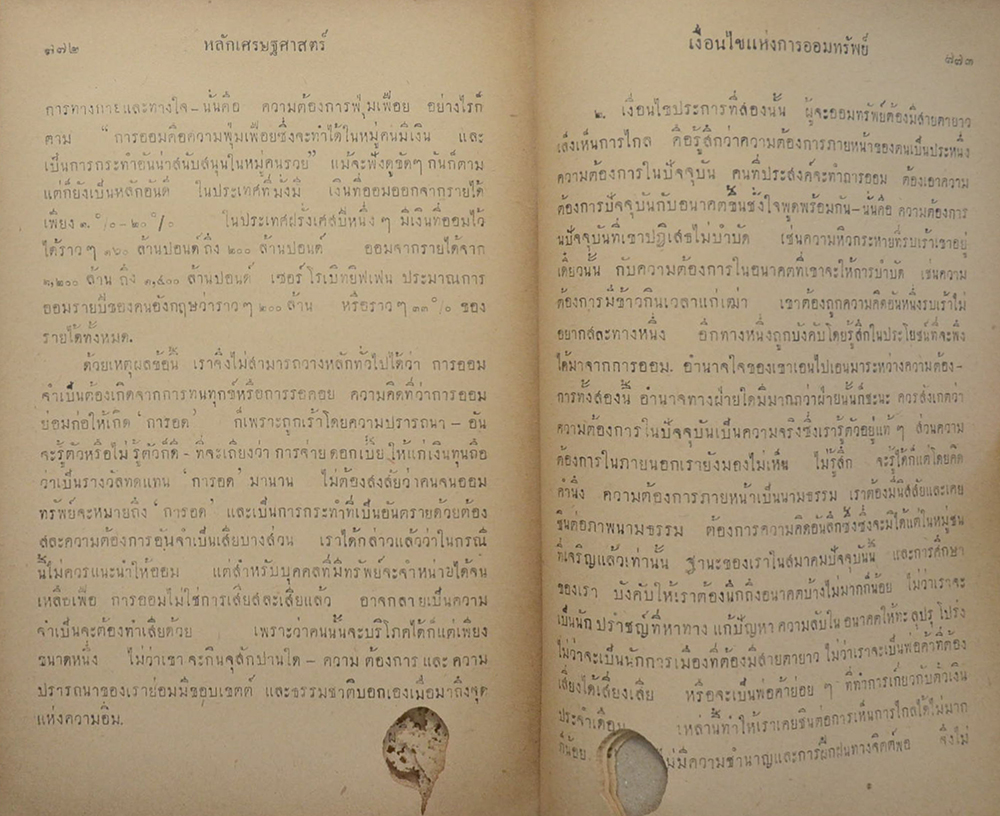 ๑๗๒
หลักเศรษฐศาสตร์
การทางกายและทางใจ – นั่นคือ ความต้องการฟุ่มเฟือย อย่างไรก็
ตาม “ การออมคือความฟุ่มเฟือยซึ่งจะทำได้ในหมู่คนมีเงิน และ
เป็นการกระทำอันน่าสนับสนุนในหมู่คนรวย” แม้จะฟังดูขัดๆ กันก็ตาม
แต่ก็ยังเป็นหลักอันดี ในประเทศที่มั่งมี เงินที่ออมออกจากรายได้
เพียง ๑๐/๐ – ๒๐ ๐/๐ ในประเทศฝรั่งเศสปีหนึ่ง ๆ มีเงินที่ออมไว้
ได้ราวๆ ๑๖๐ ล้านปอนด์ ถึง ๒๐๐ ล้านปอนด์ ออมจากรายได้จาก
๑,๒๐๐ ล้าน ถึง ๑,๕๐๐ ล้านปอนด์ เซอร์ โรเบิทยิฟเฟ่น ประมาณการ
ออมรายปีของคนอังกฤษว่าราวๆ ๒๐๐ ล้าน หรือราวๆ ๑๑ ๐/๐ ของ
รายได้ทั้งหมด.
ด้วยเหตุผลข้อนี้ เราจึงไม่สามารถวางหลักทั่วไปได้ว่า การออม
จำเป็นต้องเกิดจากการทนทุกข์หรือการรอคอย ความคิดที่ว่าการออม
ย่อมก่อให้เกิด ‘การอด’ ก็เพราะถูกเร้าโดยความปรารถนา – อัน
จะรู้ตัวหรือไม่รู้ตัวก็ดี - ที่จะเถียงว่า การจ่ายดอกเบี้ยให้แก่เงินทุนถือ
ว่าเป็นรางวัลทดแทน ‘การอด’ มานาน ไม่ต้องสงสัยว่าคนจนออม
ทรัพย์จะหมายถึง ‘การอด’ และเป็นการกระทำที่เป็นอันตรายด้วยต้อง
สละความต้องการอันจำเป็นเสียบางส่วน เราได้กล่าวแล้วว่าในกรณี
นี้ไม่ควรแนะนำให้ออม แต่สำหรับบุคคลที่มีทรัพย์จะจำหน่ายได้จน
เหลือเฟือ การออมไม่ใช่การเสียสละเสียแล้ว อาจกลายเป็นความ
จำเป็นจะต้องทำเสียด้วย เพราะว่าคนนั้นจะบริโภคได้ก็แต่เพียง
ขนาดหนึ่ง ไม่ว่าเขาจะกินจุสักปานใด – ความต้องการ และ ความ
ปรารถนาของเราย่อมมีขอบเขตต์ และธรรมชาติบอกเองเมื่อมาถึงจุด
แห่งความอิ่ม.
เงื่อนไขแห่งการออมทรัพย์
๑๗๓
๒. เงื่อนไขประการที่สองนั้น ผู้จะออมทรัพย์ต้องมีสายตายาว
เล็งเห็นการไกล คือรู้สึกว่าความต้องการภายหน้าของตนเป็นประหนึ่ง
ความต้องการในปัจจุบัน คนที่ประสงค์จะทำการออม ต้องเอาความ
ต้องการปัจจุบันกับอนาคตขึ้นชั่งใจพูดพร้อมกัน–นั่นคือ ความต้องการ
ปัจจุบันที่เขาปฏิเสธไม่บำบัด เช่นความหิวกระหายที่รบเร้าเขาอยู่
เดี๋ยวนั้น กับความต้องการในอนาคตที่เขาจะให้การบำบัด เช่นความ
ต้องการมีข้าวกินเวลาแก่เฒ่า เขาต้องถูกความคิดอันหนึ่งรบเร้าไม่
อยากสละทางหนึ่ง อีกทางหนึ่งถูกบังคับโดยรู้สึกในประโยชน์ที่จะพึง
ได้มาจากการออม. อำนาจใจของเขาเอนไปเอนมาระหว่างความต้อง-
การทั้งสองนี้ อำนาจทางฝ่ายใดมีมากกว่าฝ่ายนั้นก็ชะนะ ควรสังเกตว่า
ความต้องการในปัจจุบันเป็นความจริงซึ่งเรารู้ตัวอยู่แท้ ๆ ส่วนความ
ต้องการในภายนอกเรายังมองไม่เห็น ไม่รู้สึก จะรู้ได้ก็แต่โดยคิด
คำนึง ความต้องการภายหน้าเป็นนามธรรม เราต้องมีนิสสัยและเคย
ชินต่อภาพนามธรรม ต้องการความคิดอันลึกซึ้งซึ่งจะมีได้แต่ในหมู่ชน
ที่เจริญแล้วเท่านั้น ฐานะของเราในสมาคมปัจจุบันนี้ และการศึกษา
ของเรา บังคับให้เราต้องนึกถึงอนาคตบ้างไม่มากก็น้อย ไม่ว่าเราจะ
เป็นนักปราชญ์ที่หาทาง แก้ปัญหา ความลับใน อนาคตให้ทะลุปรุโปร่ง
ไม่ว่าจะเป็นนักการเมืองที่ต้องมีสายตายาว ไม่ว่าเราจะเป็นพ่อค้าที่ต้อง
เสี่ยงได้เสี่ยงเสีย หรือจะเป็นพ่อค้าย่อย ๆ ที่ทำการเกี่ยวกับตั๋วเงิน
ประจำเดือน เหล่านี้ทำให้เราเคยชินต่อการเห็นการไกลได้ไม่มาก
ก็น้อย ไม่มีความชำนาญและการฝึกฝนทางจิตต์พอ จึงไม่